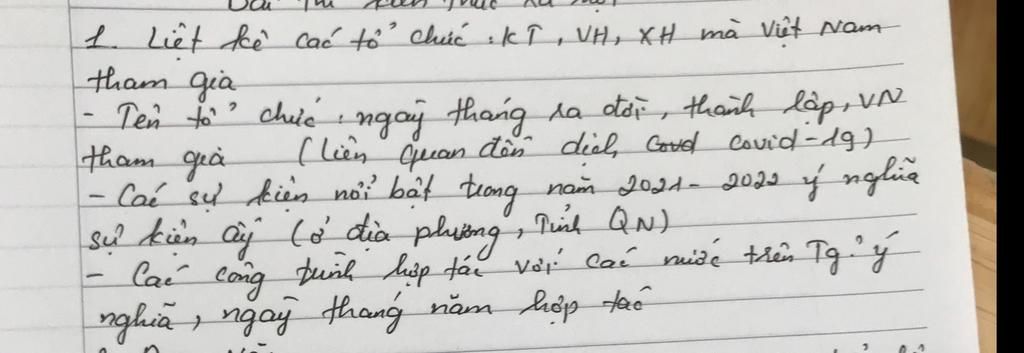 1. Liệt kê các tổ chức : KT, VH, XH mà Việt Nam
tham gia
- Tên tổ chức, ngày tháng ra đời, thành lập, VN
tham gia (liên quan đến dịch covid-19)
- Các sự kiện nổi bật trong năm 2021-2022 ý nghĩa
sự kiện ấy (ở địa phương, Tỉnh QN)
- Các công trình hợp tác với các nước trên Tg. ý
nghĩa, ngày tháng năm hợp tác